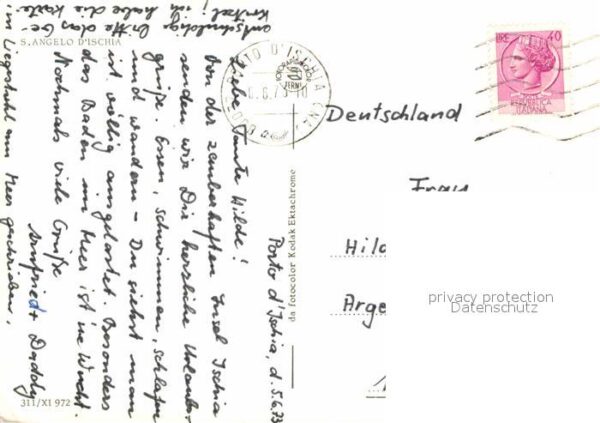 S. ANGELO D'ISCHIA
Porto d'Ischia, d. 5.6.73
Liebe Tante Hilde!
Von der zauberhaften Insel Ischia
senden wir Dir herzliche Urlaubs-
grüße. Essen, schwimmen, schlafen
und wandern - Du siehst man
ist völlig ausgelastet. Besonders
das Baden im Meer ist 'ne Wucht.
Nochmals viele Grüße
Winfried + Daddy
entschuldige bitte das Ge-
kritzel! ich habe die Karte
im Liegestuhl am Meer geschrieben.
311/XI 972
da fotocolor Kodak Ektachrome
PORTO D'ISCHIA
LIRE 40
REPUBBLICA
ITALIANA
Deutschland
Frau
Hild
Arge
privacy protection
Datenschutz